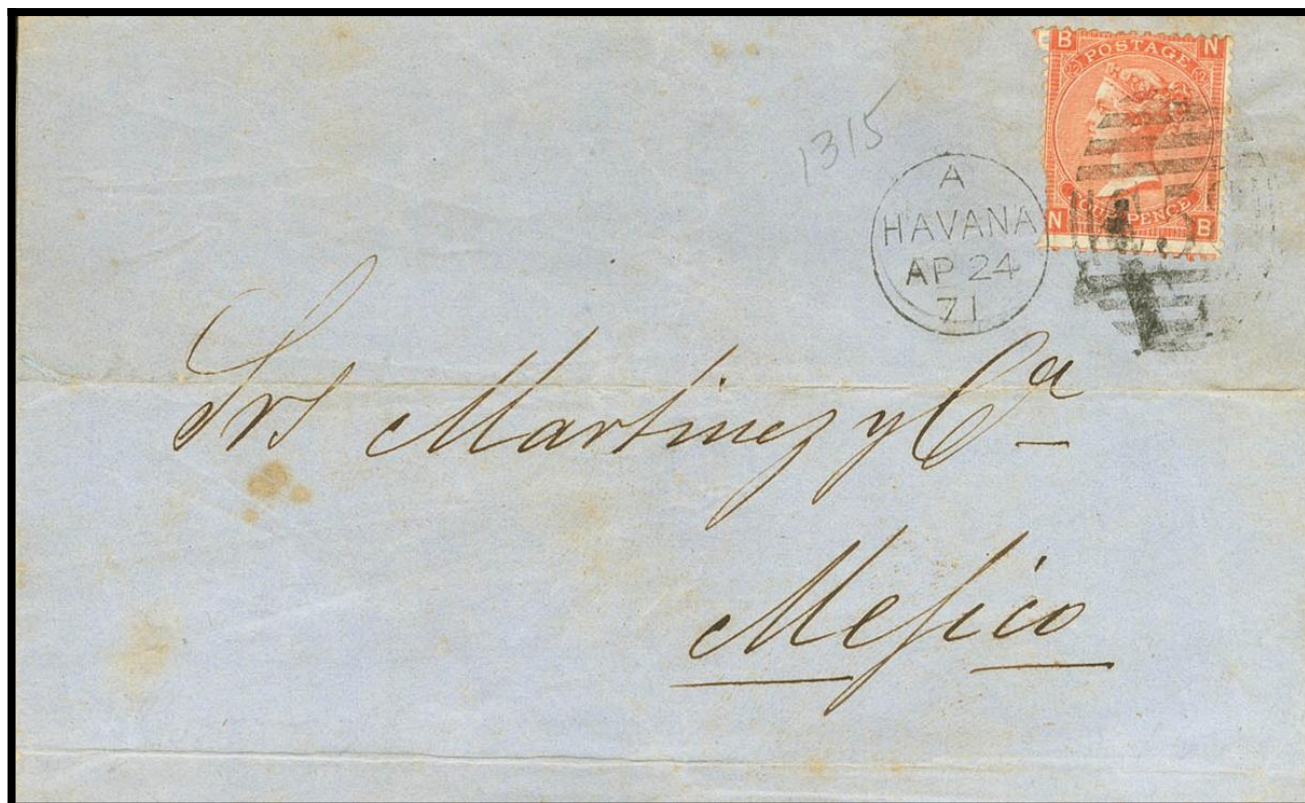 B N
POSTAGE
FOUR PENCE
N B
1315
A
HAVANA
AP 24
71
Srs Martinez y Cª
Mejico